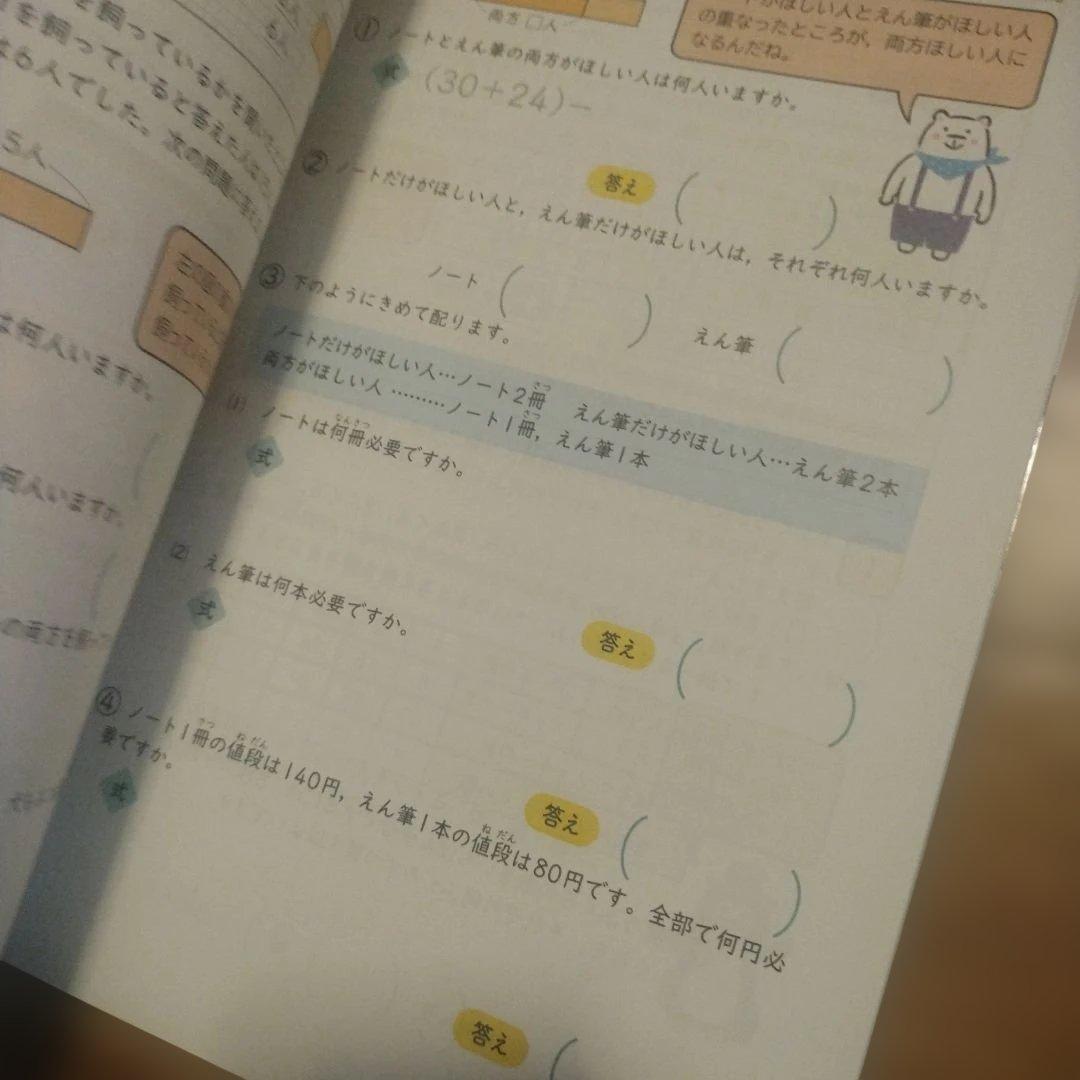 6人
を飼っているかを聞いた
を飼っていると答えた人は
は6人でした。次の問題に答え
5人
は何人いますか。
何人いますか。
両方 □人
がほしい人とえん筆がほしい人
の重なったところが，両方ほしい人に
なるんだね。
① ノートとえん筆の両方がほしい人は何人いますか。
式 (30+24)−
答え ( )
② ノートだけがほしい人と，えん筆だけがほしい人は，それぞれ何人いますか。
ノート ( ) えん筆 ( )
③ 下のようにきめて配ります。
ノートだけがほしい人…ノート2冊 えん筆だけがほしい人…えん筆2本
両方がほしい人 ………ノート1冊，えん筆1本
(1) ノートは何冊必要ですか。
式
答え ( )
(2) えん筆は何本必要ですか。
式
答え ( )
④ ノート1冊の値段は140円，えん筆1本の値段は80円です。全部で何円必
要ですか。
式
答え (